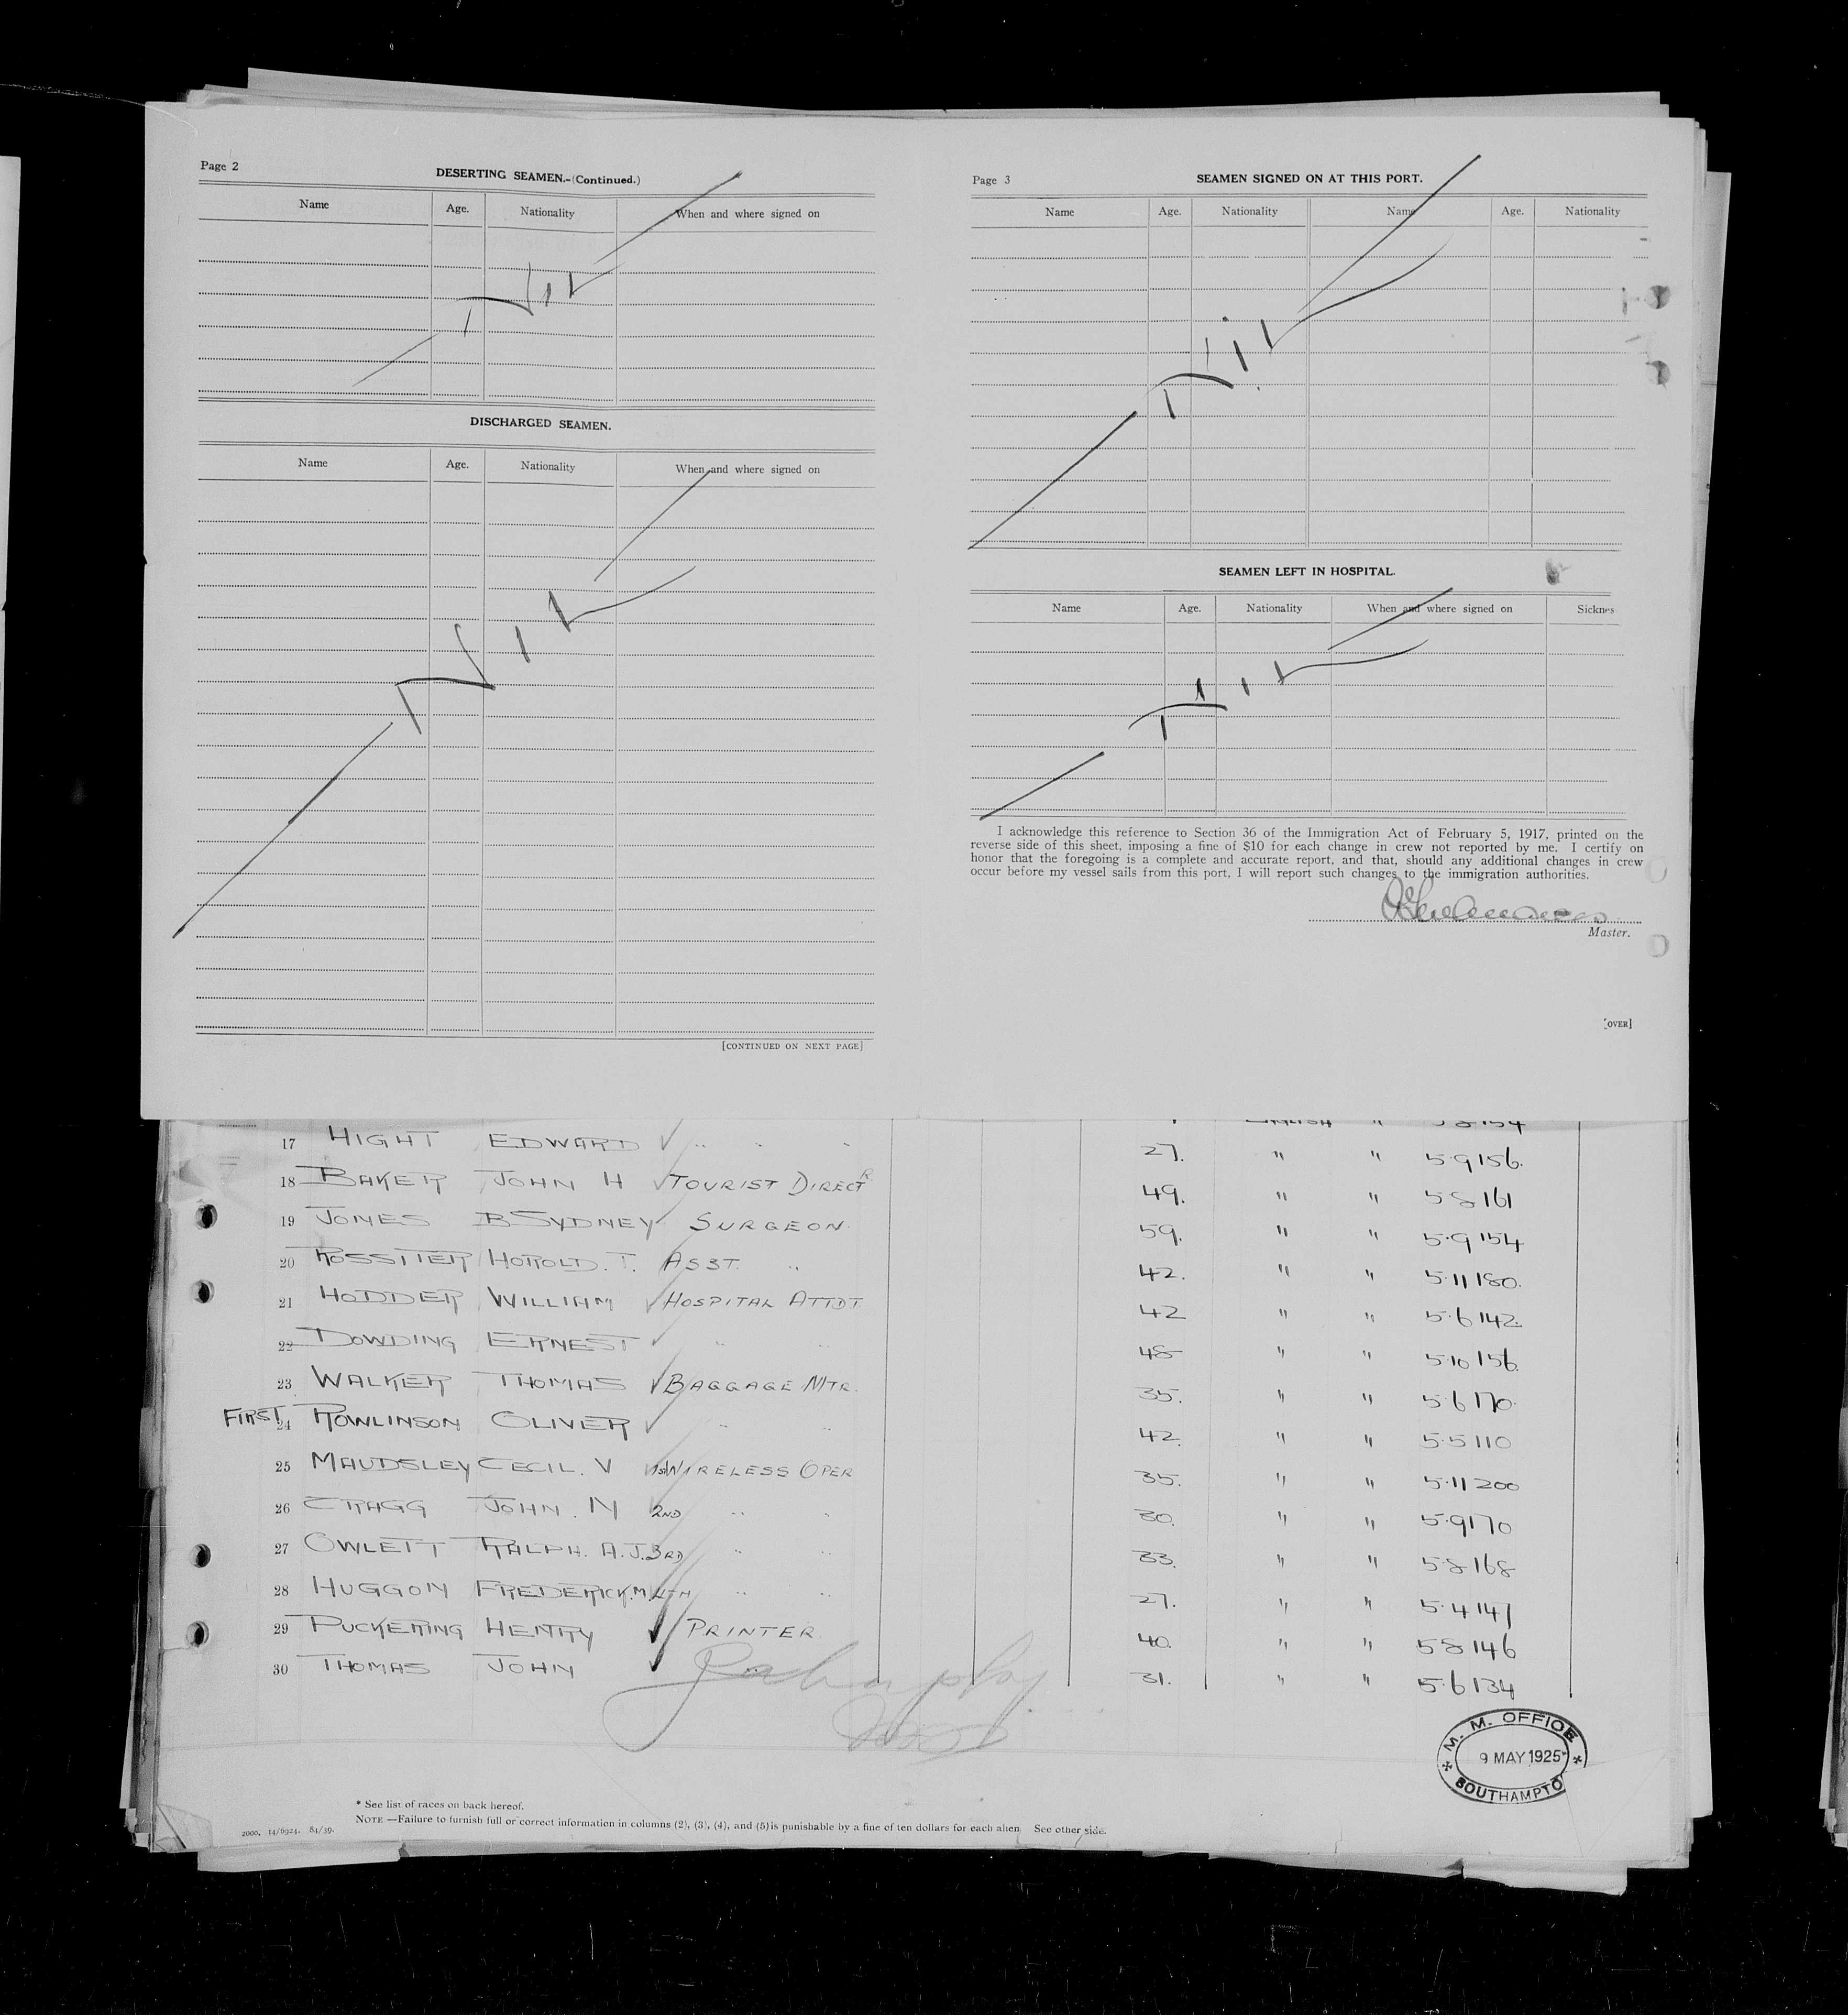 Page 2
DESERTING SEAMEN.-(Continued.)
Name Age. Nationality When and where signed on
Nil
DISCHARGED SEAMEN.
Name Age. Nationality When and where signed on
Nil
[CONTINUED ON NEXT PAGE]
Page 3
SEAMEN SIGNED ON AT THIS PORT.
Name Age. Nationality Name Age. Nationality
Nil
SEAMEN LEFT IN HOSPITAL.
Name Age. Nationality When and where signed on Sicknes
Nil
I acknowledge this reference to Section 36 of the Immigration Act of February 5, 1917, printed on the
reverse side of this sheet, imposing a fine of $10 for each change in crew not reported by me. I certify on
honor that the foregoing is a complete and accurate report, and that, should any additional changes in crew
occur before my vessel sails from this port, I will report such changes to the immigration authorities.
Master.
[OVER]
17 HIGHT EDWARD " " " 27. " " 5.9 156.
18 BAKER JOHN H TOURIST DIRECTR 49. " " 5 8 161
19 JONES B SYDNEY SURGEON. 59. " " 5.9 154
20 ROSSITER HOROLD. T. ASST. " 42. " " 5.11 180.
21 HODDER WILLIAM HOSPITAL ATTDT 42 " " 5.6 142.
22 DOWDING ERNEST " " 48 " " 5.10 156.
23 WALKER THOMAS BAGGAGE MTR. 35. " " 5.6 170.
FIRST 24 ROWLINSON OLIVER " " 42. " " 5.5 110
25 MAUDSLEY CECIL. V 1st WIRELESS OPER 35. " " 5.11 200
26 CRAGG JOHN. N 2ND " " 30. " " 5.9 170
27 OWLETT RALPH. A. J. 3RD " " 33. " " 5.8 168
28 HUGGON FREDERICK. M. 4TH " " 27. " " 5.4 147
29 PUCKERING HENRY PRINTER. 40. " " 5 8 146
30 THOMAS JOHN " 31. " " 5.6 134
M. M. OFFICE
9 MAY 1925
SOUTHAMPTO
* See list of races on back hereof.
NOTE —Failure to furnish full or correct information in columns (2), (3), (4), and (5) is punishable by a fine of ten dollars for each alien. See other side.
2000. 14/6924. 84/39.